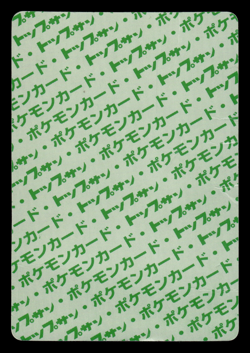 トップサン・ポケモンカード・
ポケモンカード・トップサン・
ポケモンカード・トップサン・ポケモンカード
トップサン・ポケモンカード・トップサン・
・トップサン・ポケモンカード・トップサン
ポケモンカード・トップサン・ポケモンカード
・ポケモンカード・トップサン・ポケモンカード
トップサン・ポケモンカード・トップサン
・トップサン・ポケモンカード・
ポケモンカード・トップサン
ポケモンカード